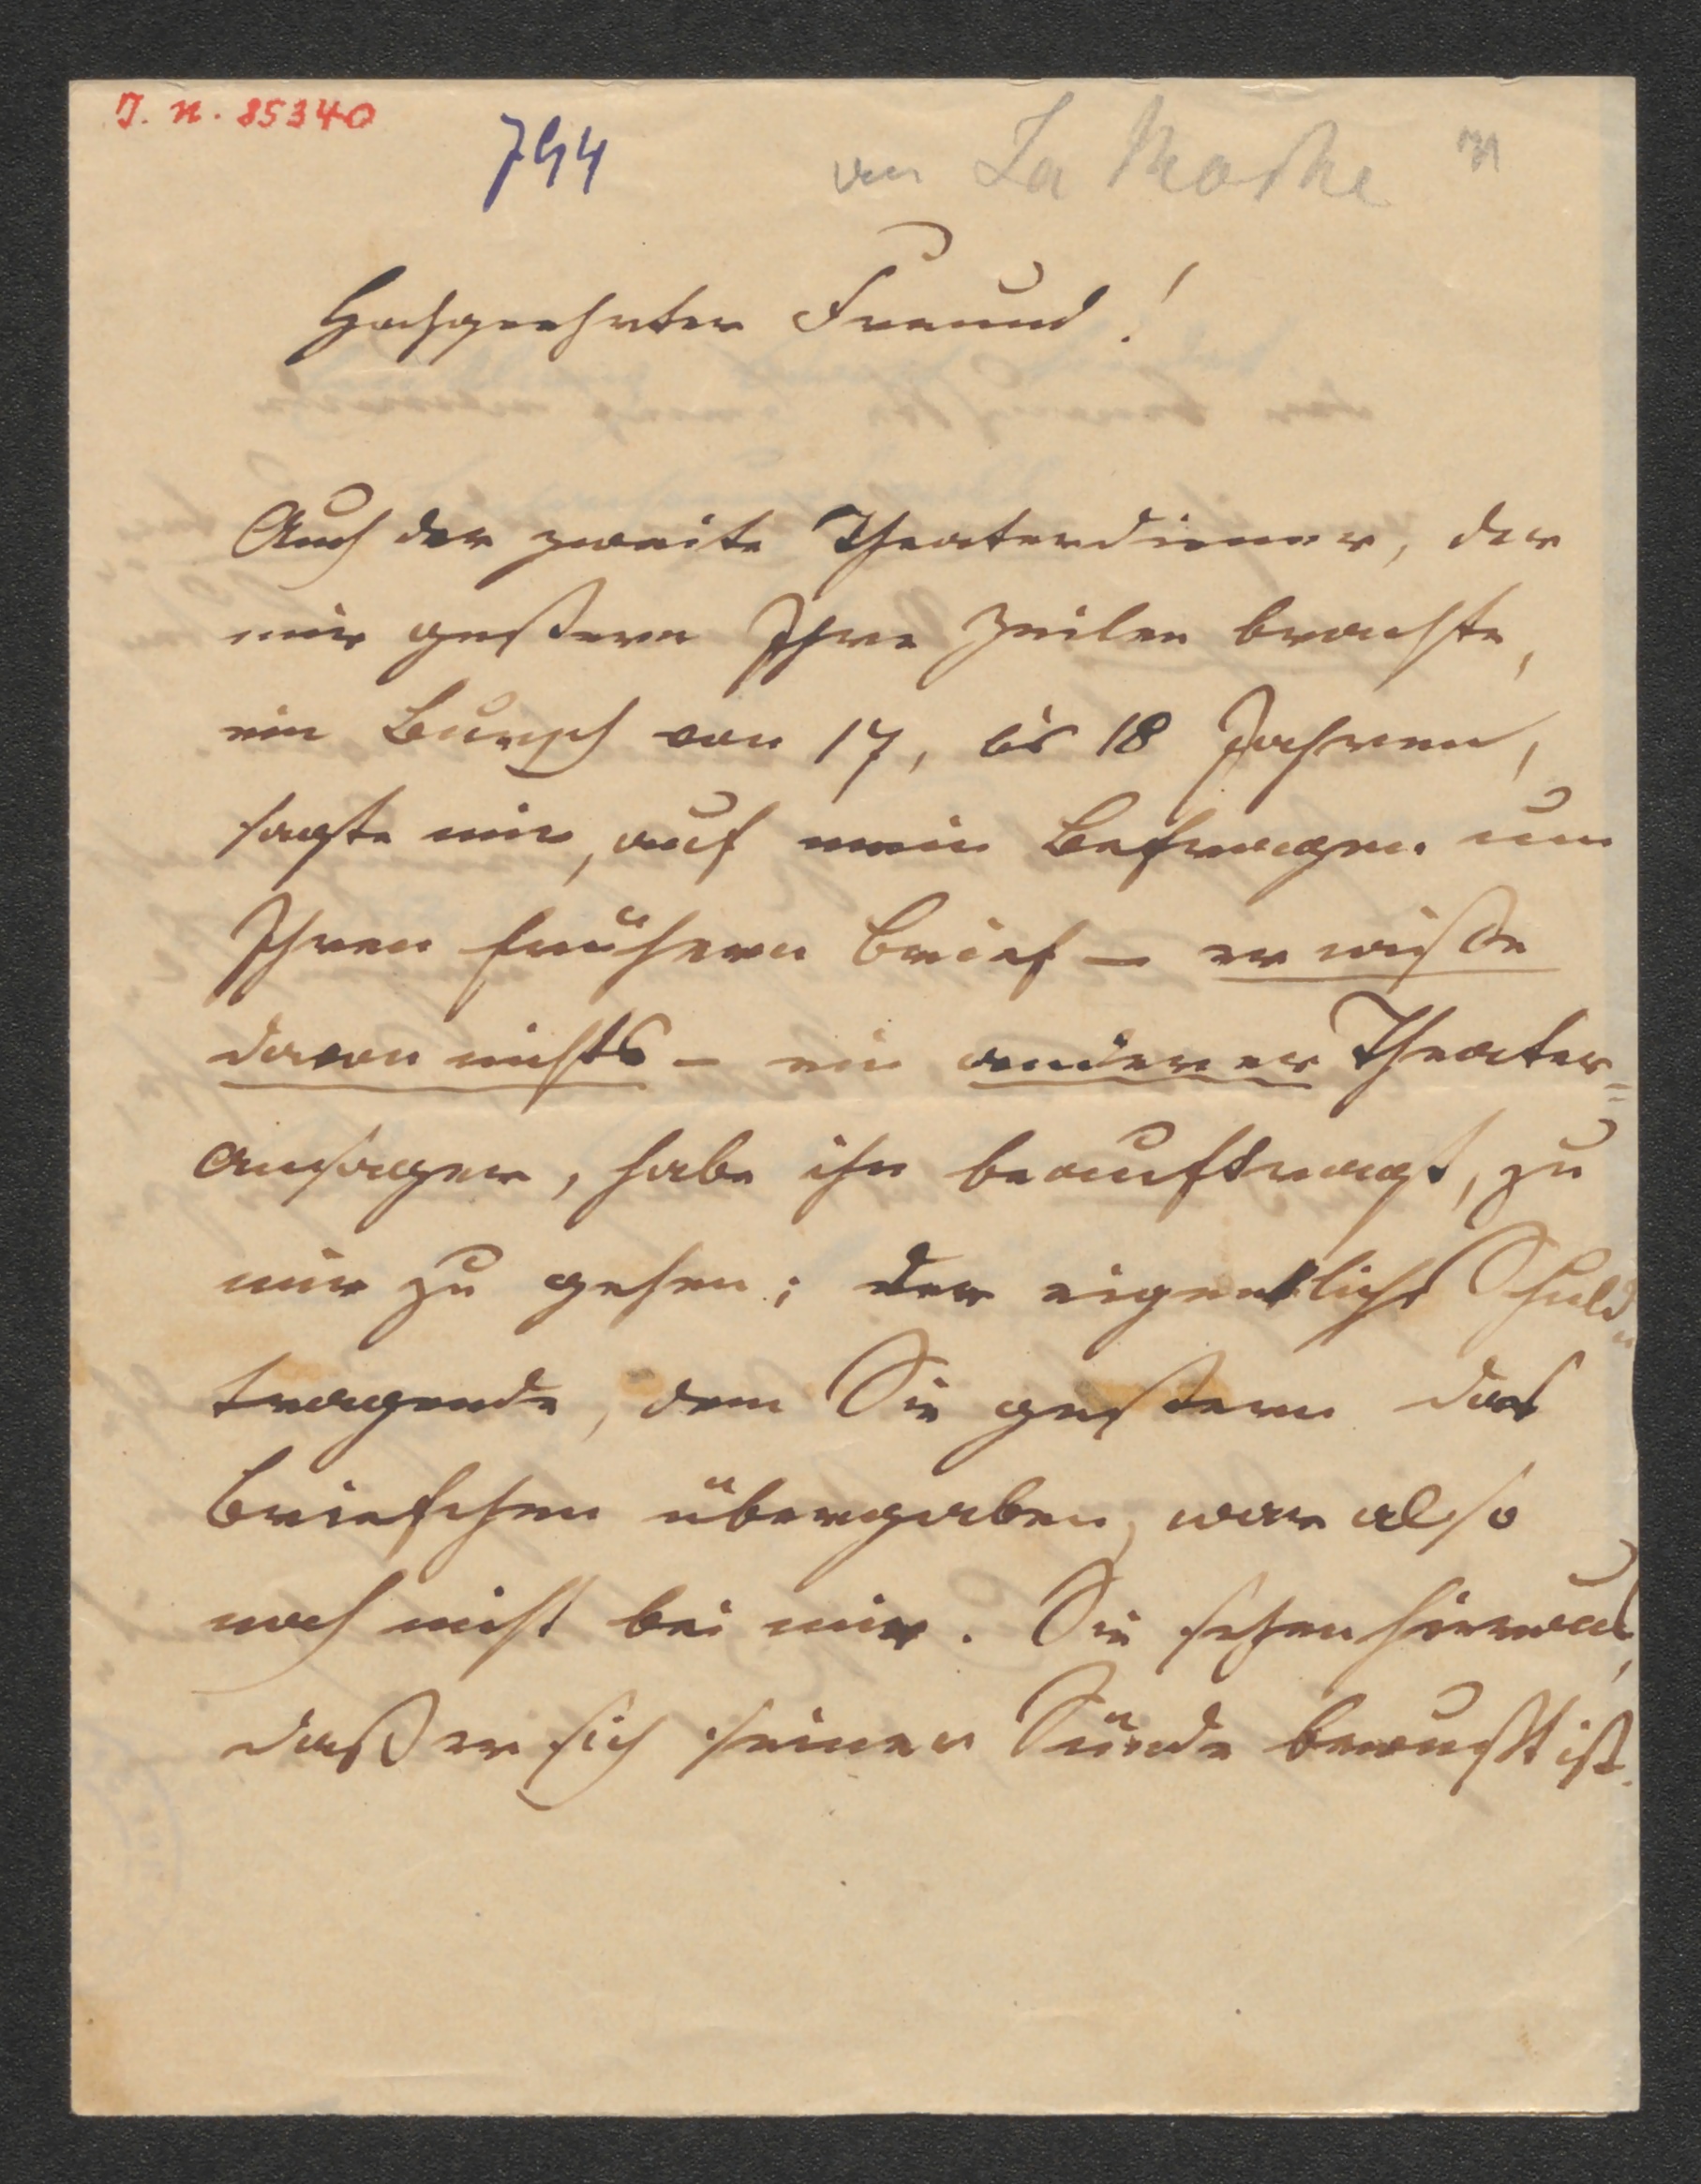 J. N. 85340
744
von La Roche
Hochgeehrter Freund!
Auch der zweite Theaterdiener, der
mir gestern Ihre Zeilen brachte,
ein Bursch von 17, bis 18 Jahren,
sagte mir, auf mein Befragen um
Ihren frühern Brief – er wiße
davon nichts – ein anderer Theater=
ansager, habe ihn beauftragt, zu
mir zu gehen; der eigentliche Schuld„
tragende, dem Sie gestern das
Briefchen übergaben, war also
noch nicht bei mir. Sie sehen hieraus,
daß er sich seiner Sünde bewußt ist.